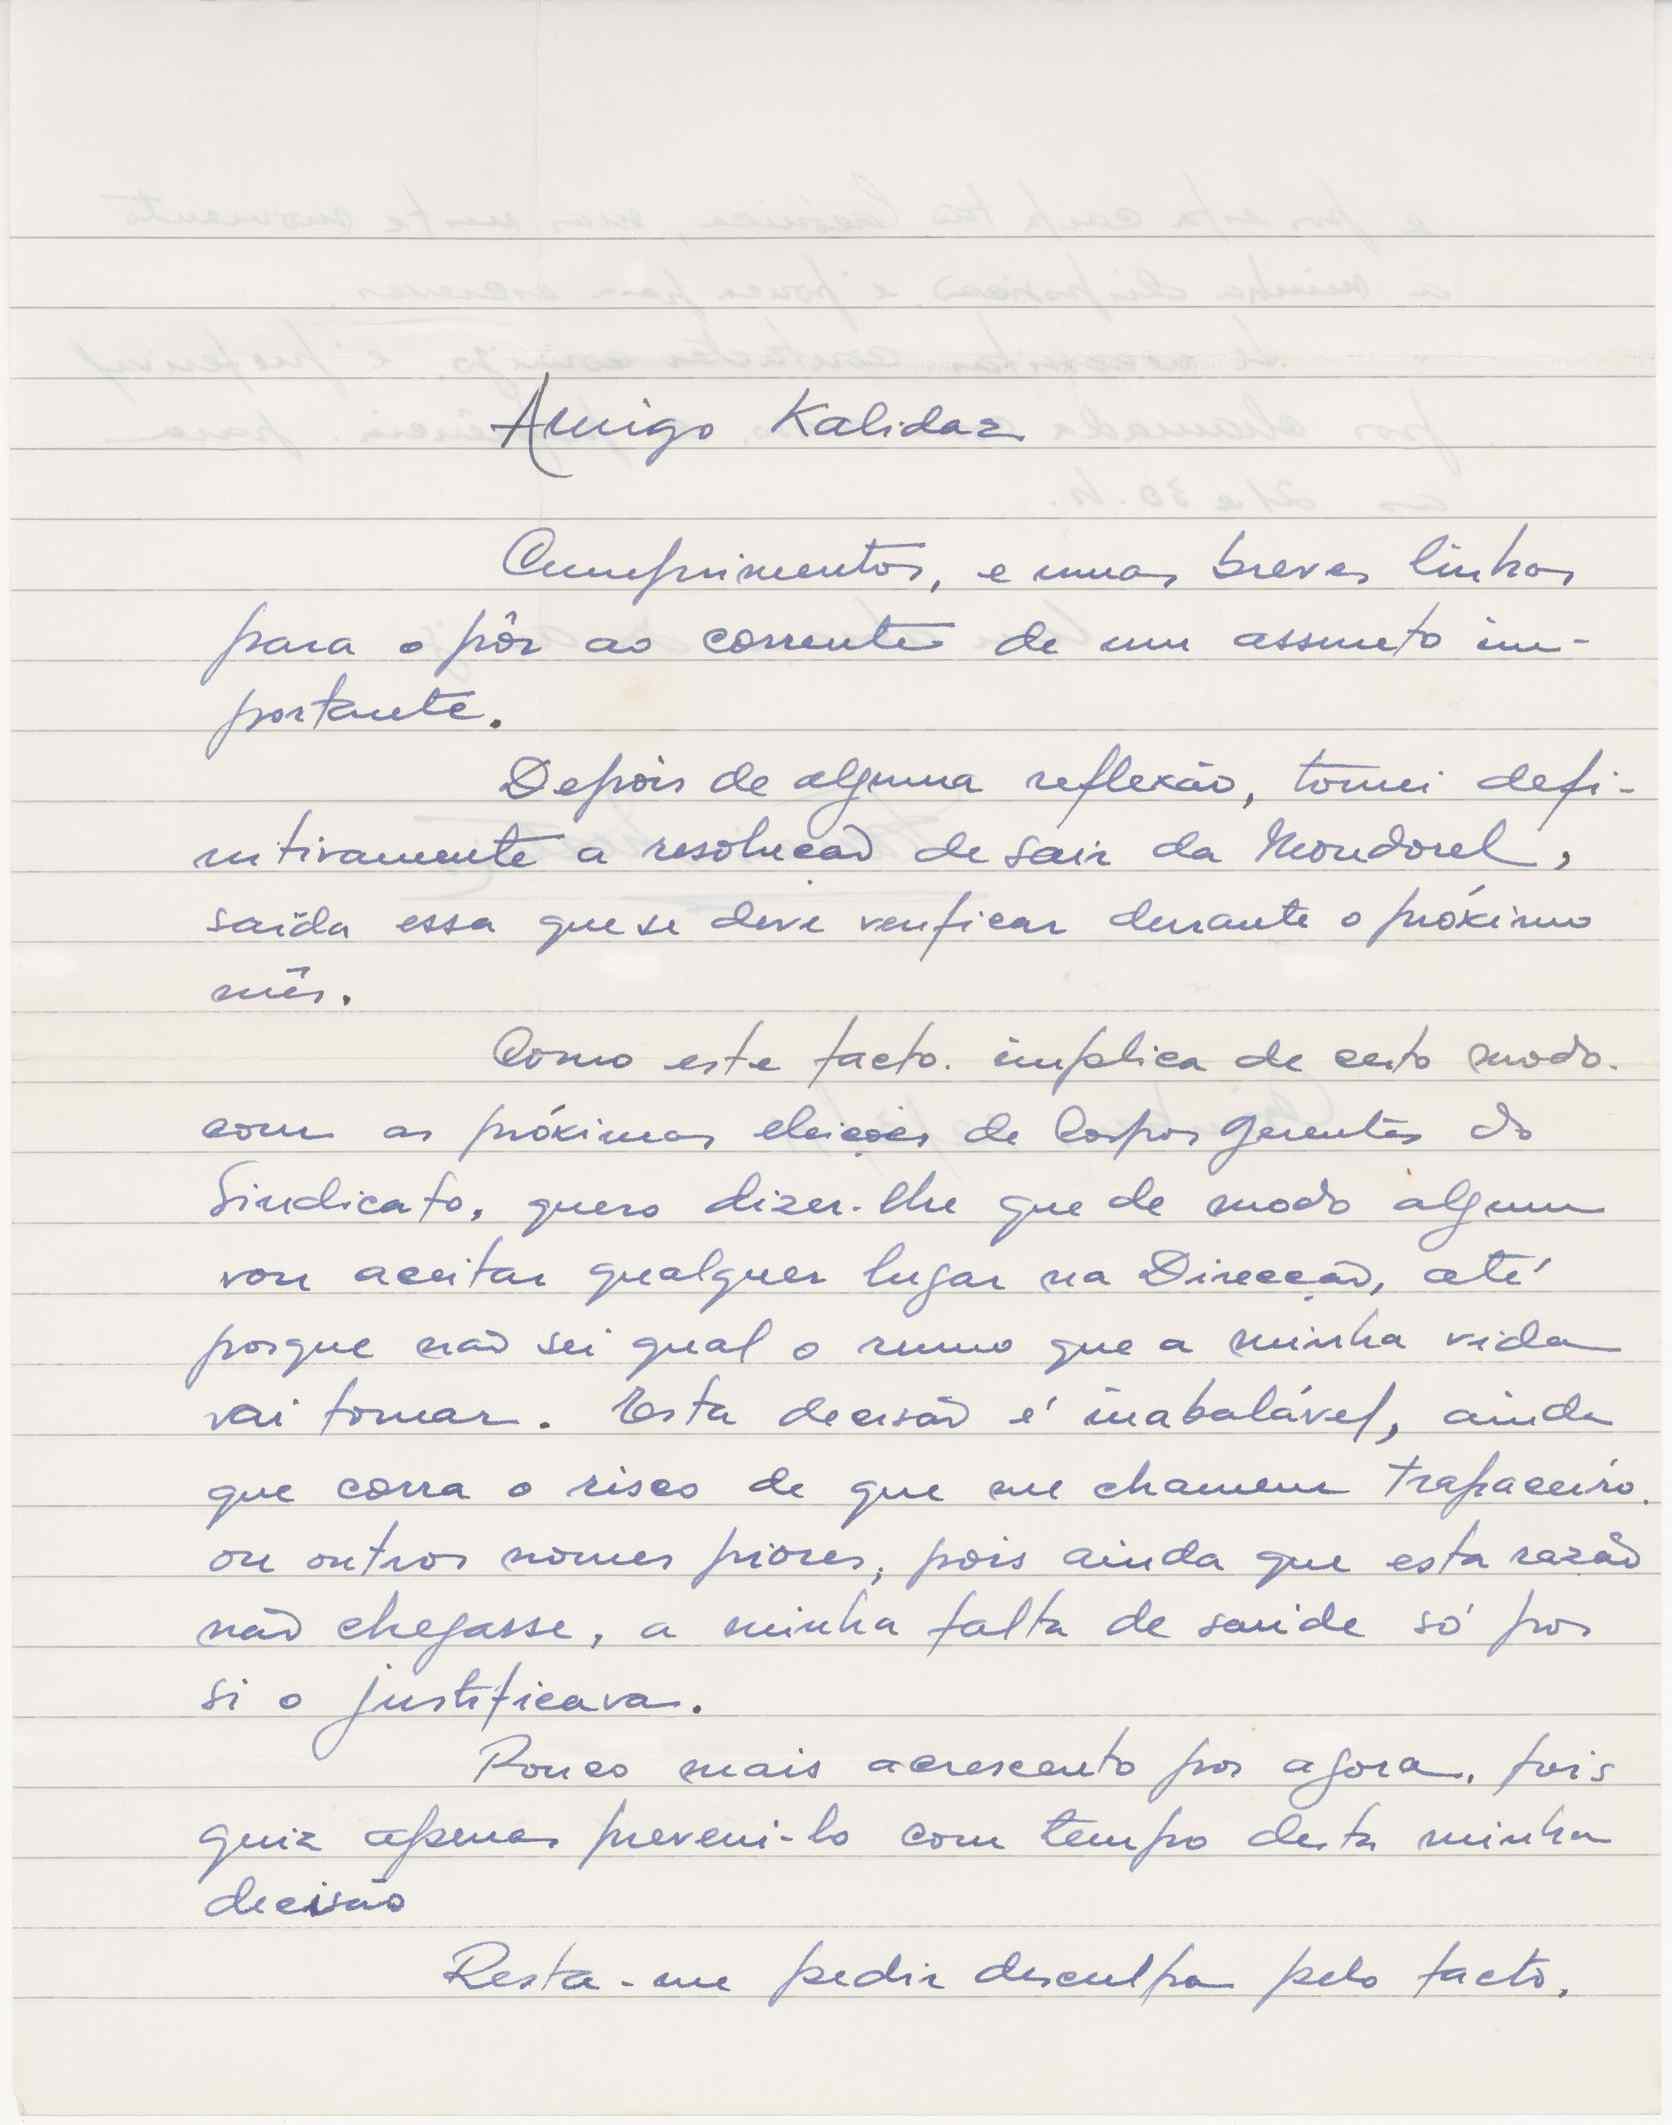 Amigo Kalidaz
Cumprimentos, e umas breves linhas
para o pôr ao corrente de um assunto im-
portante.
Depois de alguma reflexão, tomei defi-
nitivamente a resolucão de sair da Mondorel,
saída essa que se deve verificar durante o próximo
mês.
Como este facto. implica de certo modo.
com as próximas eleições de Corpos Gerentes do
Sindicato, quero dizer-lhe que de modo algum
vou aceitar qualquer lugar na Direcção, até
porque não sei qual o rumo que a minha vida
vai tomar. Esta decisão é inabalável, ainda
que corra o risco de que me chamem trapaceiro.
ou outros nomes piores, pois ainda que esta razão
não chegasse, a minha falta de saúde só por
si o justificava.
Pouco mais acrescento por agora, pois
quiz apenas preveni-lo com tempo desta minha
decisão
Resta-me pedir desculpa pelo facto,